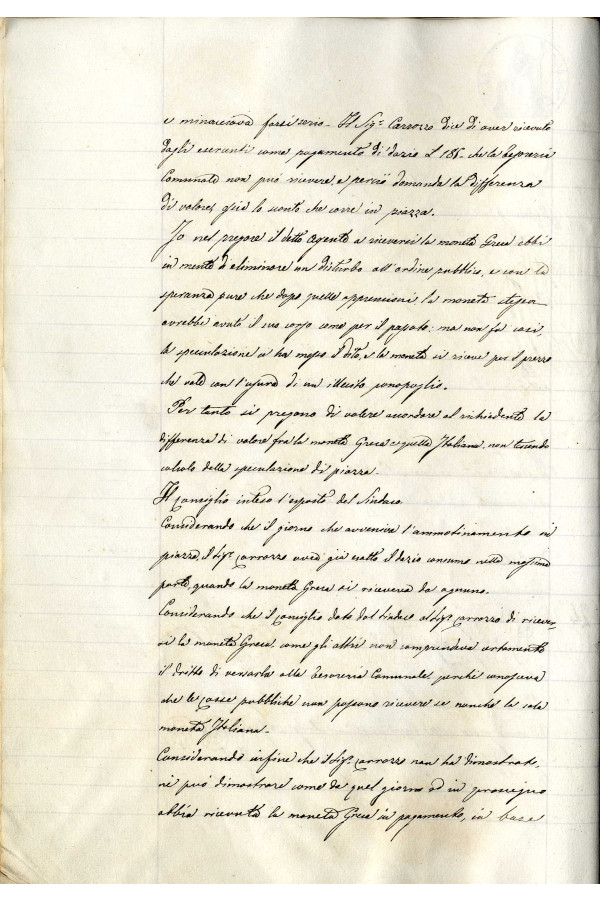 e minacciava farsi serio. Il Sig.r Carrozzo dice di aver ricevuto
dagli esercenti come pagamento di dazio L 186. che la Tesoreria
Comunale non può ricevere, e perciò domanda la differenza
di valore, giù lo sconto che corre in piazza.
Io nel pregare il detto Agente a riceversi la moneta Greca ebbi
in mente di eliminare un disturbo all'ordine pubblico, e con la
speranza pure che dopo quelle apprensioni la moneta stessa
avrebbe avuto il suo corso come per il passato: ma non fu così,
la speculazione ci ha messo il dito, e la moneta si riceve per il prezzo
che vale con l'usura di un illecito monopoglio.
Per tanto si pregono di volere accordare al richiedente la
differenza di valore fra la moneta Greca e quella Italiana, non tenendo
calcolo della speculazione di piazza.
Il Consiglio inteso l'esposto del Sindaco
Considerando che il giorno che avvenire l'ammotinamento in
piazza, il Sig.r Carrozzo aveva già esatto il dazio consumo nella massima
parte, quando la moneta Greca si riceveva da ognuno.
Considerando che il consiglio dato dal Sindaco al Sig.r Carrozzo di riceversi
la moneta Greca, come gli altri non comprendeva certamente
il dritto di versarla alla Tesoreria Comunale, perchè conosceva
che le Casse pubbliche non possono ricevere se nonchè la sola
moneta Italiana.
Considerando infine che il Sig.r Carrozzo non ha dimostrato,
nè può dimostrare come da quel giorno od in proseguo
abbia ricevuta la moneta Greca in pagamento, in base